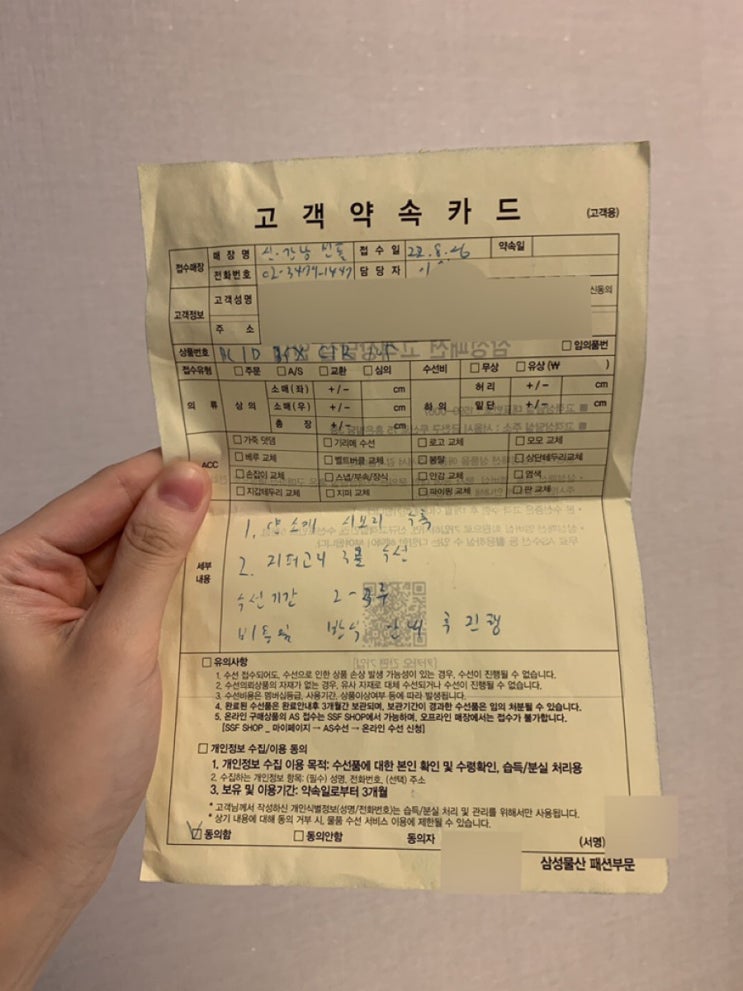 고객약속카드 (고객용)
접수매장 매장명 신.강남 빈폴 접수일 22.8.26 약속일
전화번호 02-3479-1447 담당자
고객정보 고객성명 신동의
주 소
상품번호 임의품번
접수유형 □주문 □A/S □교환 □심의 수선비 □무상 □유상(₩ )
의 류 상 의 소매(좌) +/- cm 하 의 허 리 +/- cm
소매(우) +/- cm 밑 단 +/- cm
총 장 +/- cm
ACC □가죽 덧댐 □기리메 수선 □로고 교체 □모모 교체
□베루 교체 □벨트버클 교체 □봉탈 □상단테두리교체
□손잡이 교체 □스냅/부속/장식 □안감 교체 □염색
□지갑테두리 교체 □지퍼 교체 □파이핑 교체 □판 교체
세부내용
1. 양소매 시보리
2. 수선
수선기간 2-3주
안내 후 진행
□유의사항
1. 수선 접수되어도, 수선으로 인한 상품 손상 발생 가능성이 있는 경우, 수선이 진행될 수 없습니다.
2. 수선의뢰상품의 자재가 없는 경우, 유사 자재로 대체 수선되거나 수선이 진행될 수 없습니다.
3. 수선비용은 멤버십등급, 사용기간, 상품이상여부 등에 따라 발생됩니다.
4. 완료된 수선품은 완료안내후 3개월간 보관되며, 보관기간이 경과한 수선품은 임의 처분될 수 있습니다.
5. 온라인 구매상품의 AS 접수는 SSF SHOP에서 가능하며, 오프라인 매장에서는 접수가 불가합니다.
[SSF SHOP _ 마이페이지 → AS수선 → 온라인 수선 신청]
□개인정보 수집/이용 동의
1. 개인정보 수집 이용 목적: 수선품에 대한 본인 확인 및 수령확인, 습득/분실 처리용
2. 수집하는 개인정보 항목: (필수) 성명, 전화번호, (선택) 주소
3. 보유 및 이용기간: 약속일로부터 3개월
* 고객님께서 작성하신 개인식별정보(성명/전화번호)는 습득/분실 처리 및 관리를 위해서만 사용됩니다.
* 상기 내용에 대해 동의 거부 시, 물품 수선 서비스 이용에 제한될 수 있습니다.
☑동의함 □동의안함 동의자 (서명)
삼성물산 패션부문